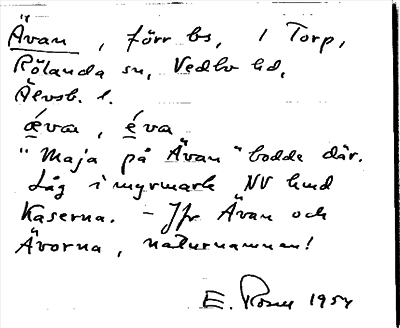 Ävan, förr bs, i Torp,
Rölanda sn, Vedbo hd,
Älvsb. l.
éva
"Maja på Ävan" bodde där.
Låg i myrmark NV
Kaserna. – Jfr Ävan och
Ävorna, naturnamnen!
E. 1954